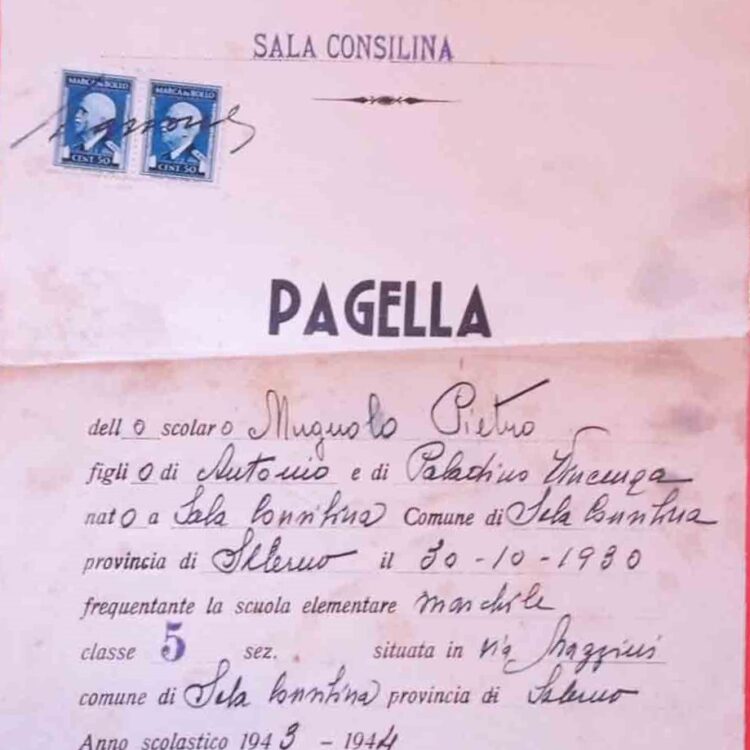 SALA CONSILINA
MARCA DA BOLLO MARCA DA BOLLO
CENT. 50 CENT. 50
PAGELLA
dell o scolaro Mugnolo Pietro
figlio di Antonio e di Paladino Vincenza
nato a Sala Consilina Comune di Sala Consilina
provincia di Salerno il 30-10-1930
frequentante la scuola elementare maschile
classe 5 sez. situata in via Mazzini
comune di Sala Consilina provincia di Salerno
Anno scolastico 1943 - 1944